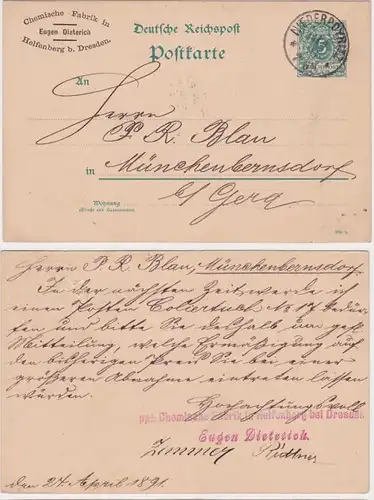 Chemische Fabrik in
Eugen Dieterich
Helfenberg b. Dresden.
Deutsche Reichspost
Postkarte
NIEDERPOYRITZ
An
Herrn
P. R. Blau
in Münchenbernsdorf
b/ Gera
Wohnung
(Straße und Hausnummer)
Herrn P. R. Blau, Münchenbernsdorf
In der nächsten Zeit werde ich
einen Posten No 17 bedür-
fen und bitte Sie deshalb um gefl.
Mitteilung, welche Ermäßigung auf
den bisherigen Preis Sie bei einer
größeren Abnahme eintreten lassen
würden.
Hochachtungsvoll
ppa. Chemische Fabrik in Helfenberg bei Dresden.
Eugen Dieterich.
den 24 April 1891.